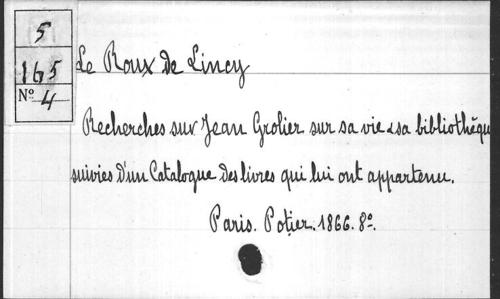 5
165
Nº 4
Le Roux de Lincy
Recherches sur Jean Grolier sur sa vie & sa bibliothèqu
suivies d'un Catalogue des livres qui lui ont appartenu.
Paris. Potier. 1866. 8º.